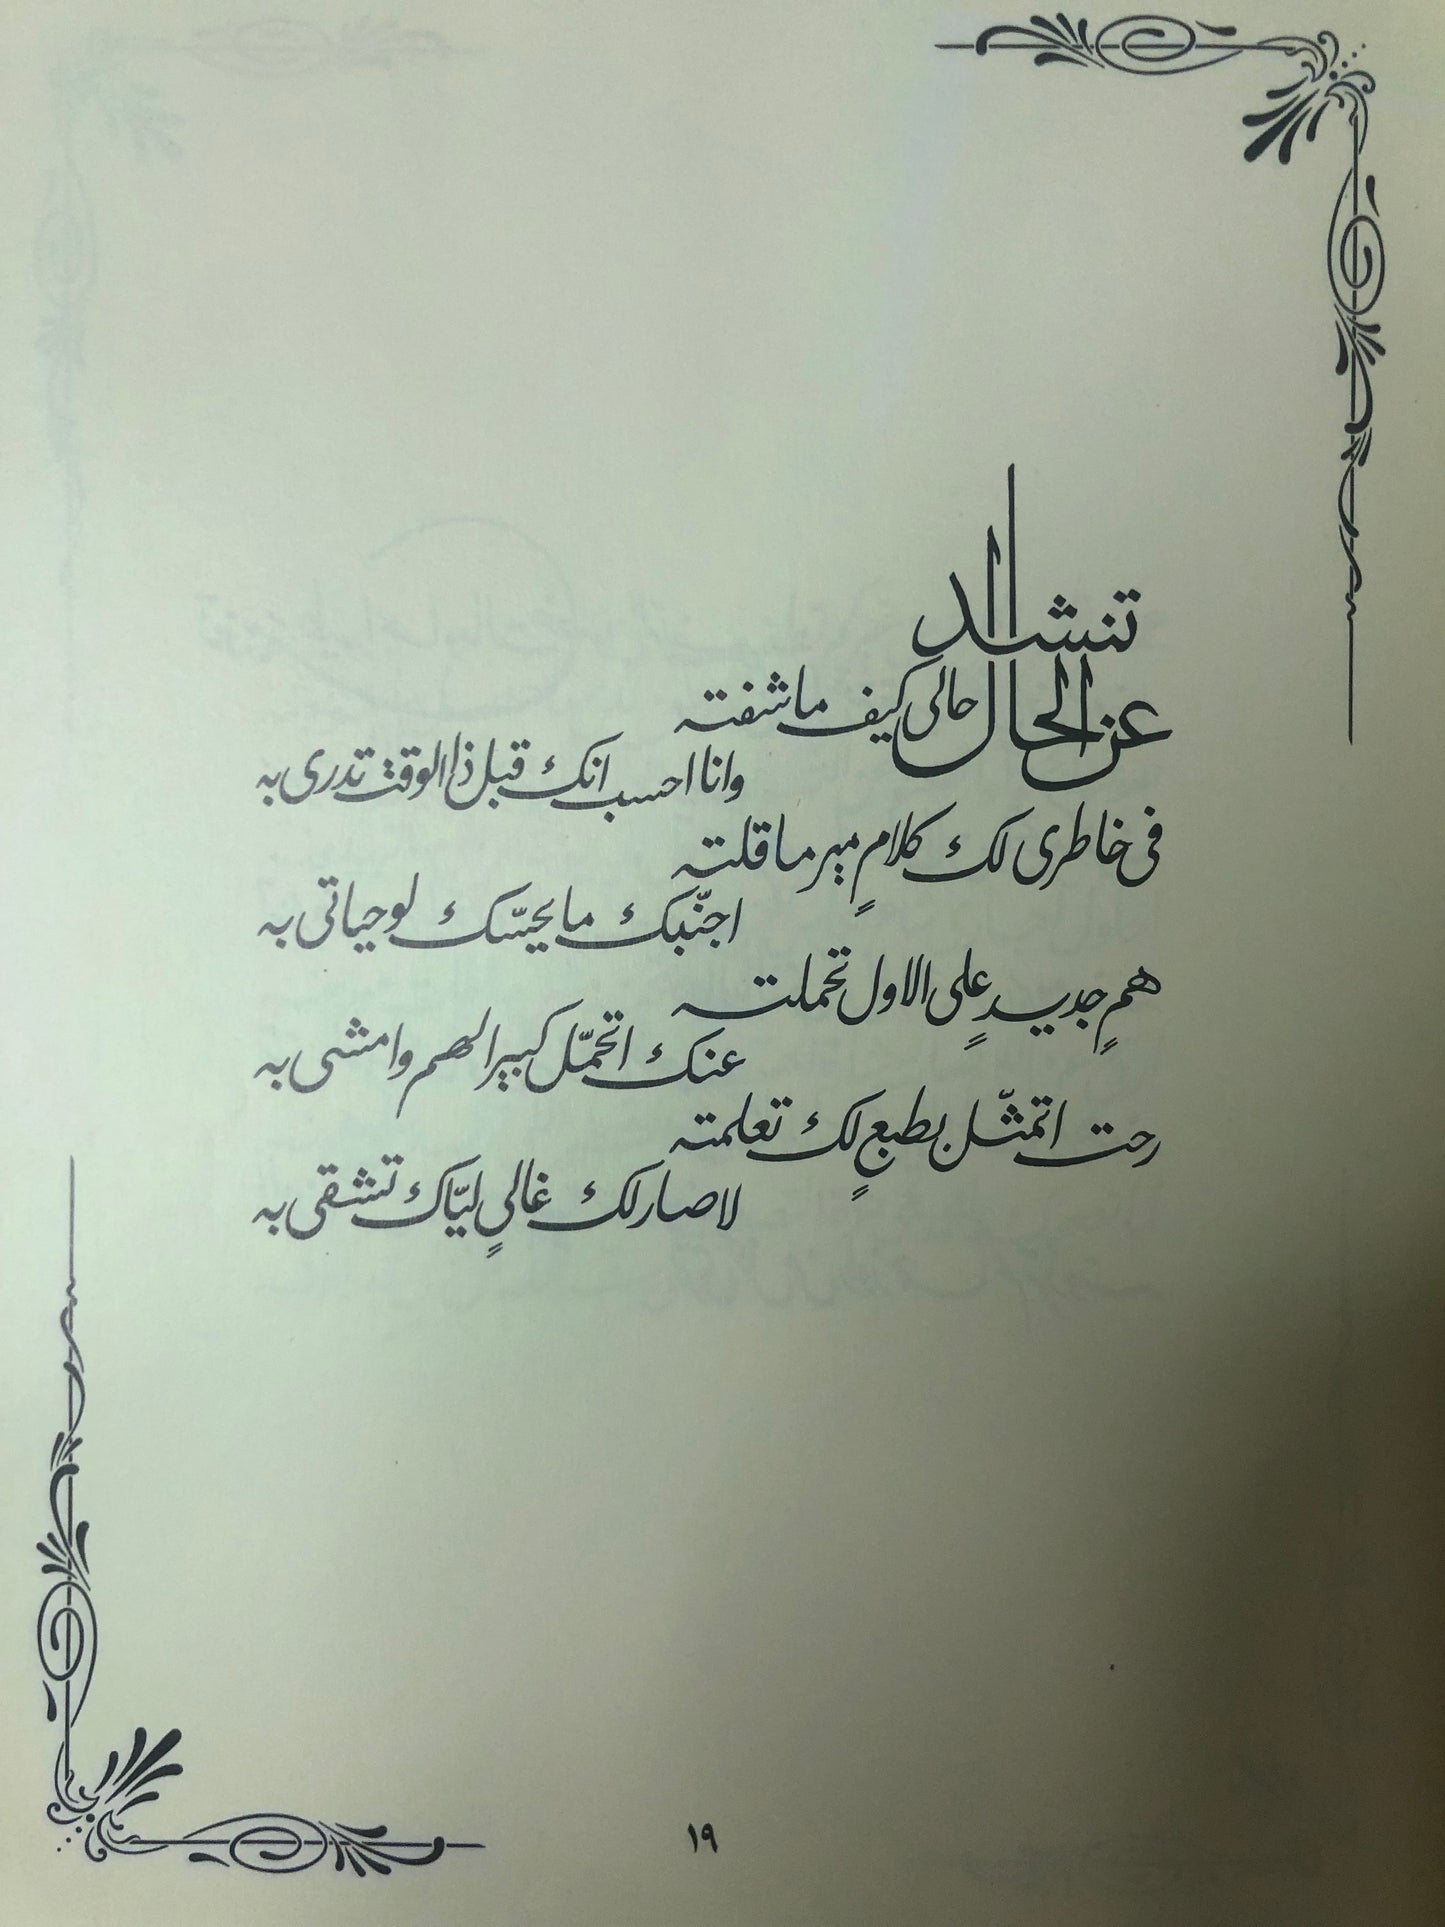 تنشد
عن الحال حالي كيف ما شفته
وانا احسب انك قبل ذا الوقت تدري به
في خاطري لك كلامٍ مير ما قلته
اجنّبك ما يحسّك لو حياتي به
همٍ جديدٍ على الاول تحملته
عنك اتحمّل كبير الهم وامشي به
رحت اتمثّل بطبعٍ لك تعلمته
لا صار لك غاليٍ ليّاك تشقى به
١٩